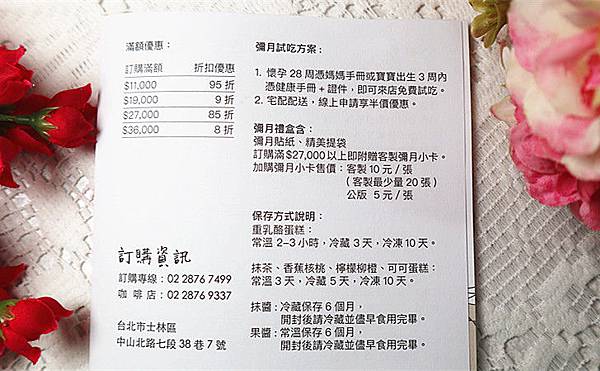 滿額優惠：
訂購滿額 折扣優惠
$11,000 95 折
$19,000 9 折
$27,000 85 折
$36,000 8 折
訂購資訊
訂購專線：02 2876 7499
咖啡店：02 2876 9337
台北市士林區
中山北路七段 38 巷 7 號
彌月試吃方案：
1. 懷孕 28 周憑媽媽手冊或寶寶出生 3 周內
憑健康手冊 + 證件，即可來店免費試吃。
2. 宅配配送，線上申請享半價優惠。
彌月禮盒含：
彌月貼紙、精美提袋
訂購滿 $27,000 以上即附贈客製彌月小卡。
加購彌月小卡售價：客製 10 元 / 張
( 客製最少量 20 張 )
公版 5 元 / 張
保存方式說明：
重乳酪蛋糕：
常溫 2–3 小時，冷藏 3 天，冷凍 10 天。
抹茶、香蕉核桃、檸檬柳橙、可可蛋糕：
常溫 3 天，冷藏 5 天，冷凍 10 天。
抹醬：冷藏保存 6 個月，
開封後請冷藏並儘早食用完畢。
果醬：常溫保存 6 個月，
開封後請冷藏並儘早食用完畢。